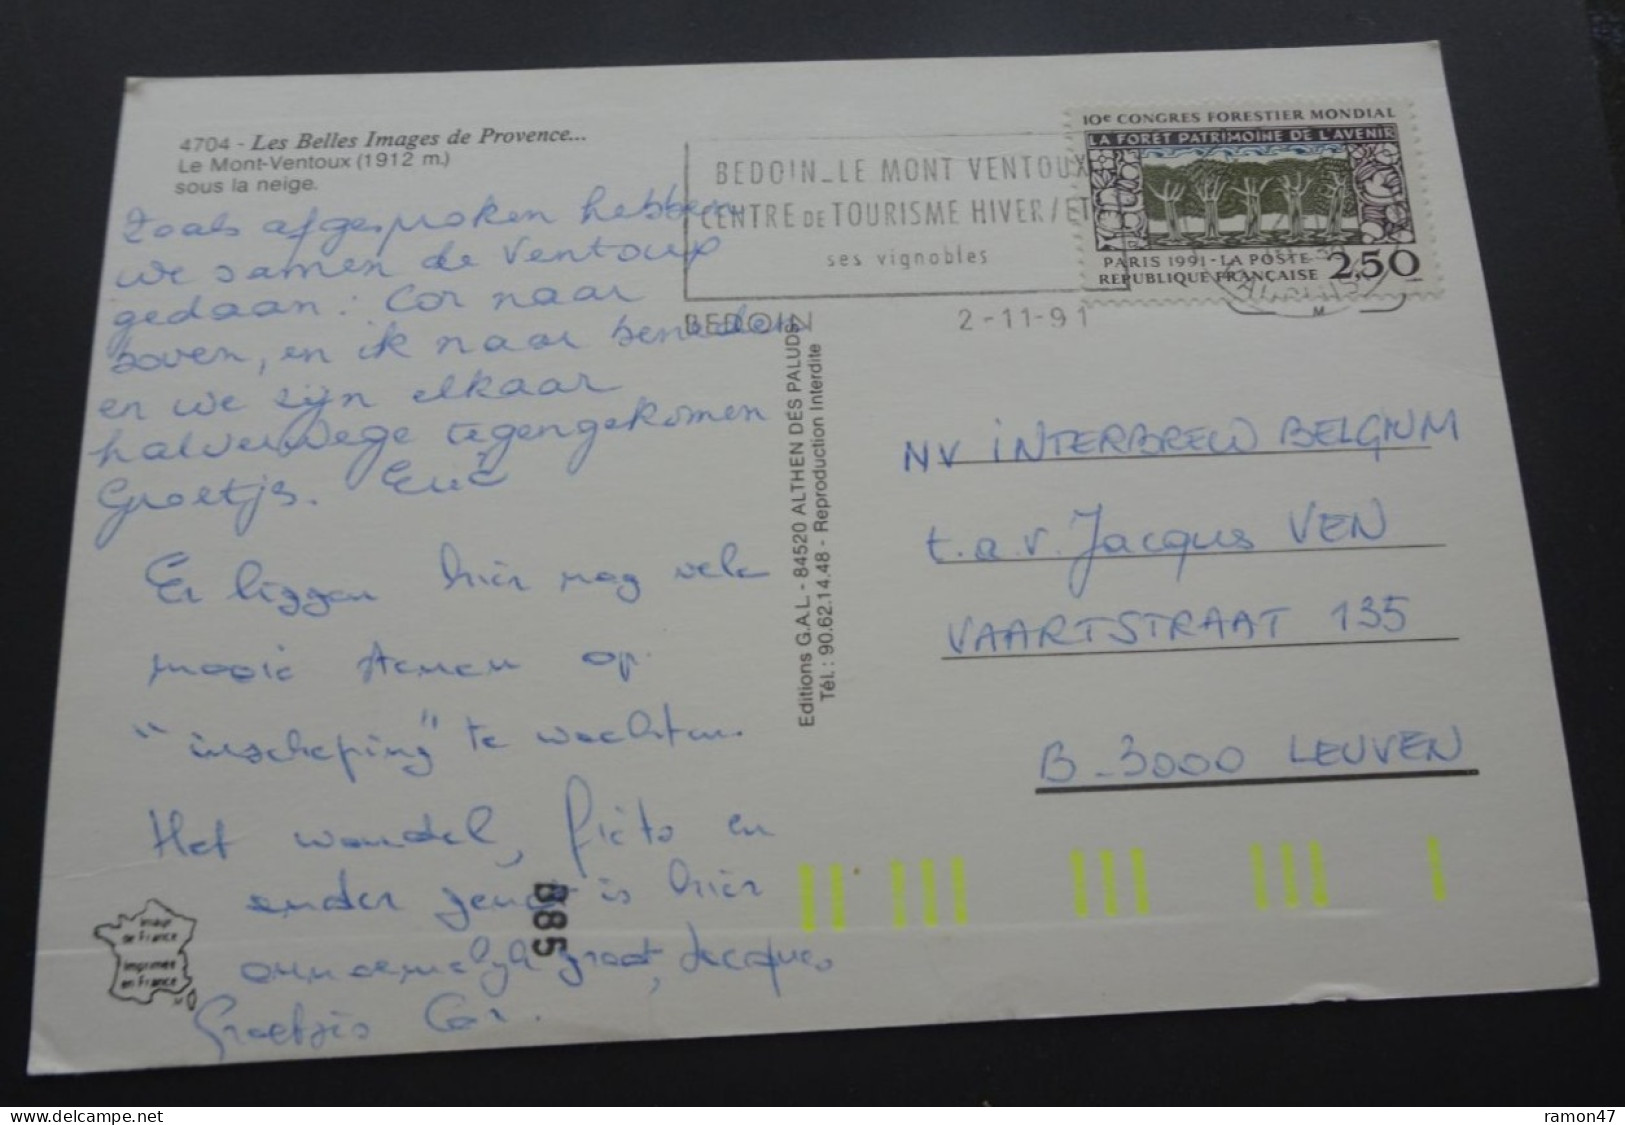 4704 - Les Belles Images de Provence...
Le Mont-Ventoux (1912 m.)
sous la neige.
Zoals afgesproken hebben
we samen de Ventoux
gedaan : Cor naar
boven, en ik naar beneden
en we zijn elkaar
halverwege tegengekomen
Groetjs. Eric
Er liggen hier nog vele
mooie stenen op
"inscheping" te wachten.
Het wandel, fiets en
ander jenot is hier
onnoemelijk groot, Jacques
Groetjes Cor.
Editions G.A.L. - 84520 ALTHEN DES PALUDS
Tél. : 90.62.14.48 - Reproduction Interdite
BEDOIN_LE MONT VENTOUX
CENTRE DE TOURISME HIVER/ET
ses vignobles
BEDOIN 2-11-91
10e CONGRES FORESTIER MONDIAL
LA FORÊT PATRIMOINE DE L'AVENIR
PARIS 1991 - LA POSTE
REPUBLIQUE FRANÇAISE 2,50
NV INTERBREW BELGIUM
t.a.v. Jacques VEN
VAARTSTRAAT 135
B-3000 LEUVEN
B85
de France
imprimée
en France
delcampe.net
ramon47